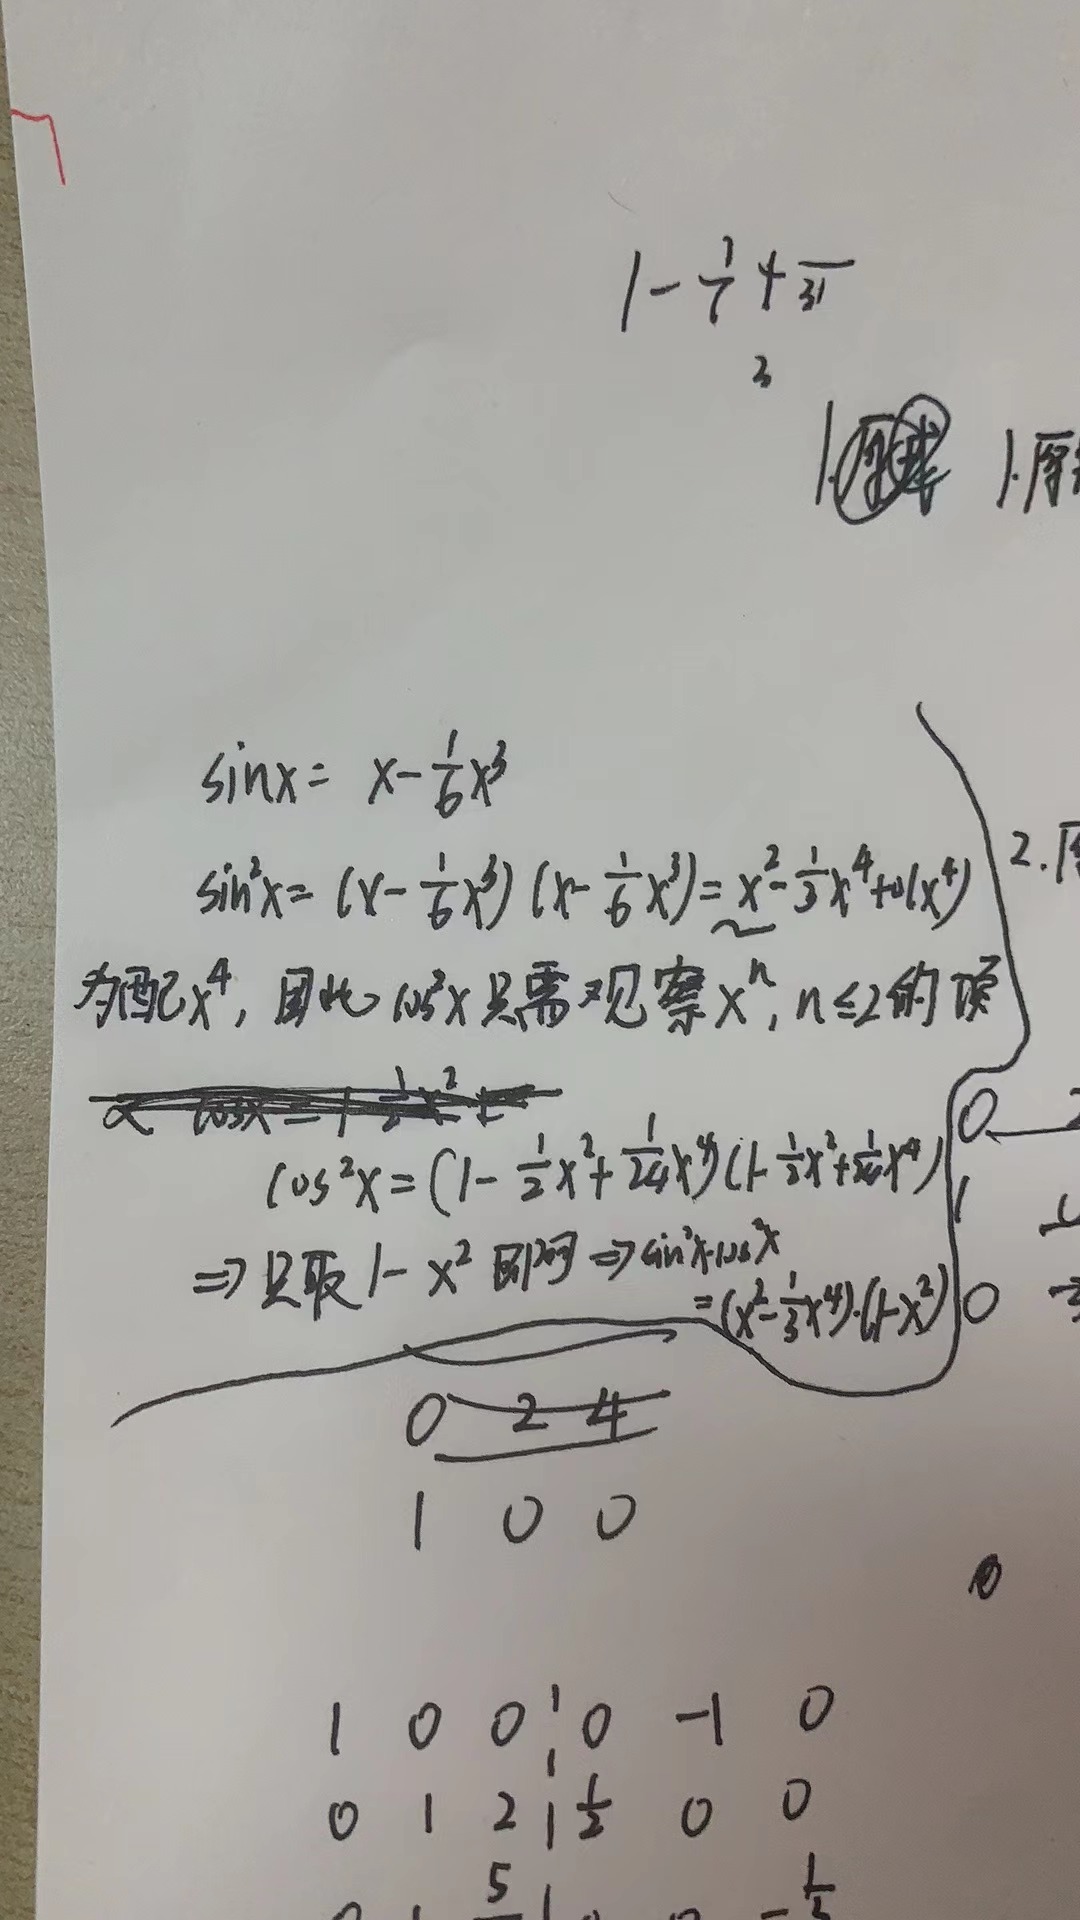 1 - 1/7 + —/31
3
1.
1.原
sinx = x - 1/6 x³
sin²x = (x - 1/6 x³)(x - 1/6 x³) = x² - 1/3 x⁴ + o(x⁴)
2.原
为配x⁴, 因此 cos²x 只需观察 xⁿ, n≤2 的项
cos²x = (1 - 1/2 x² + 1/24 x⁴)(1 - 1/2 x² + 1/24 x⁴)
0
1
⇒ 只取 1 - x² 即可 ⇒ sin²x·cos²x
= (x² - 1/3 x⁴)·(1 - x²)
0
0 2 4
1 0 0
0
1 0 0 0 -1 0
0 1 2 1/2 0 0